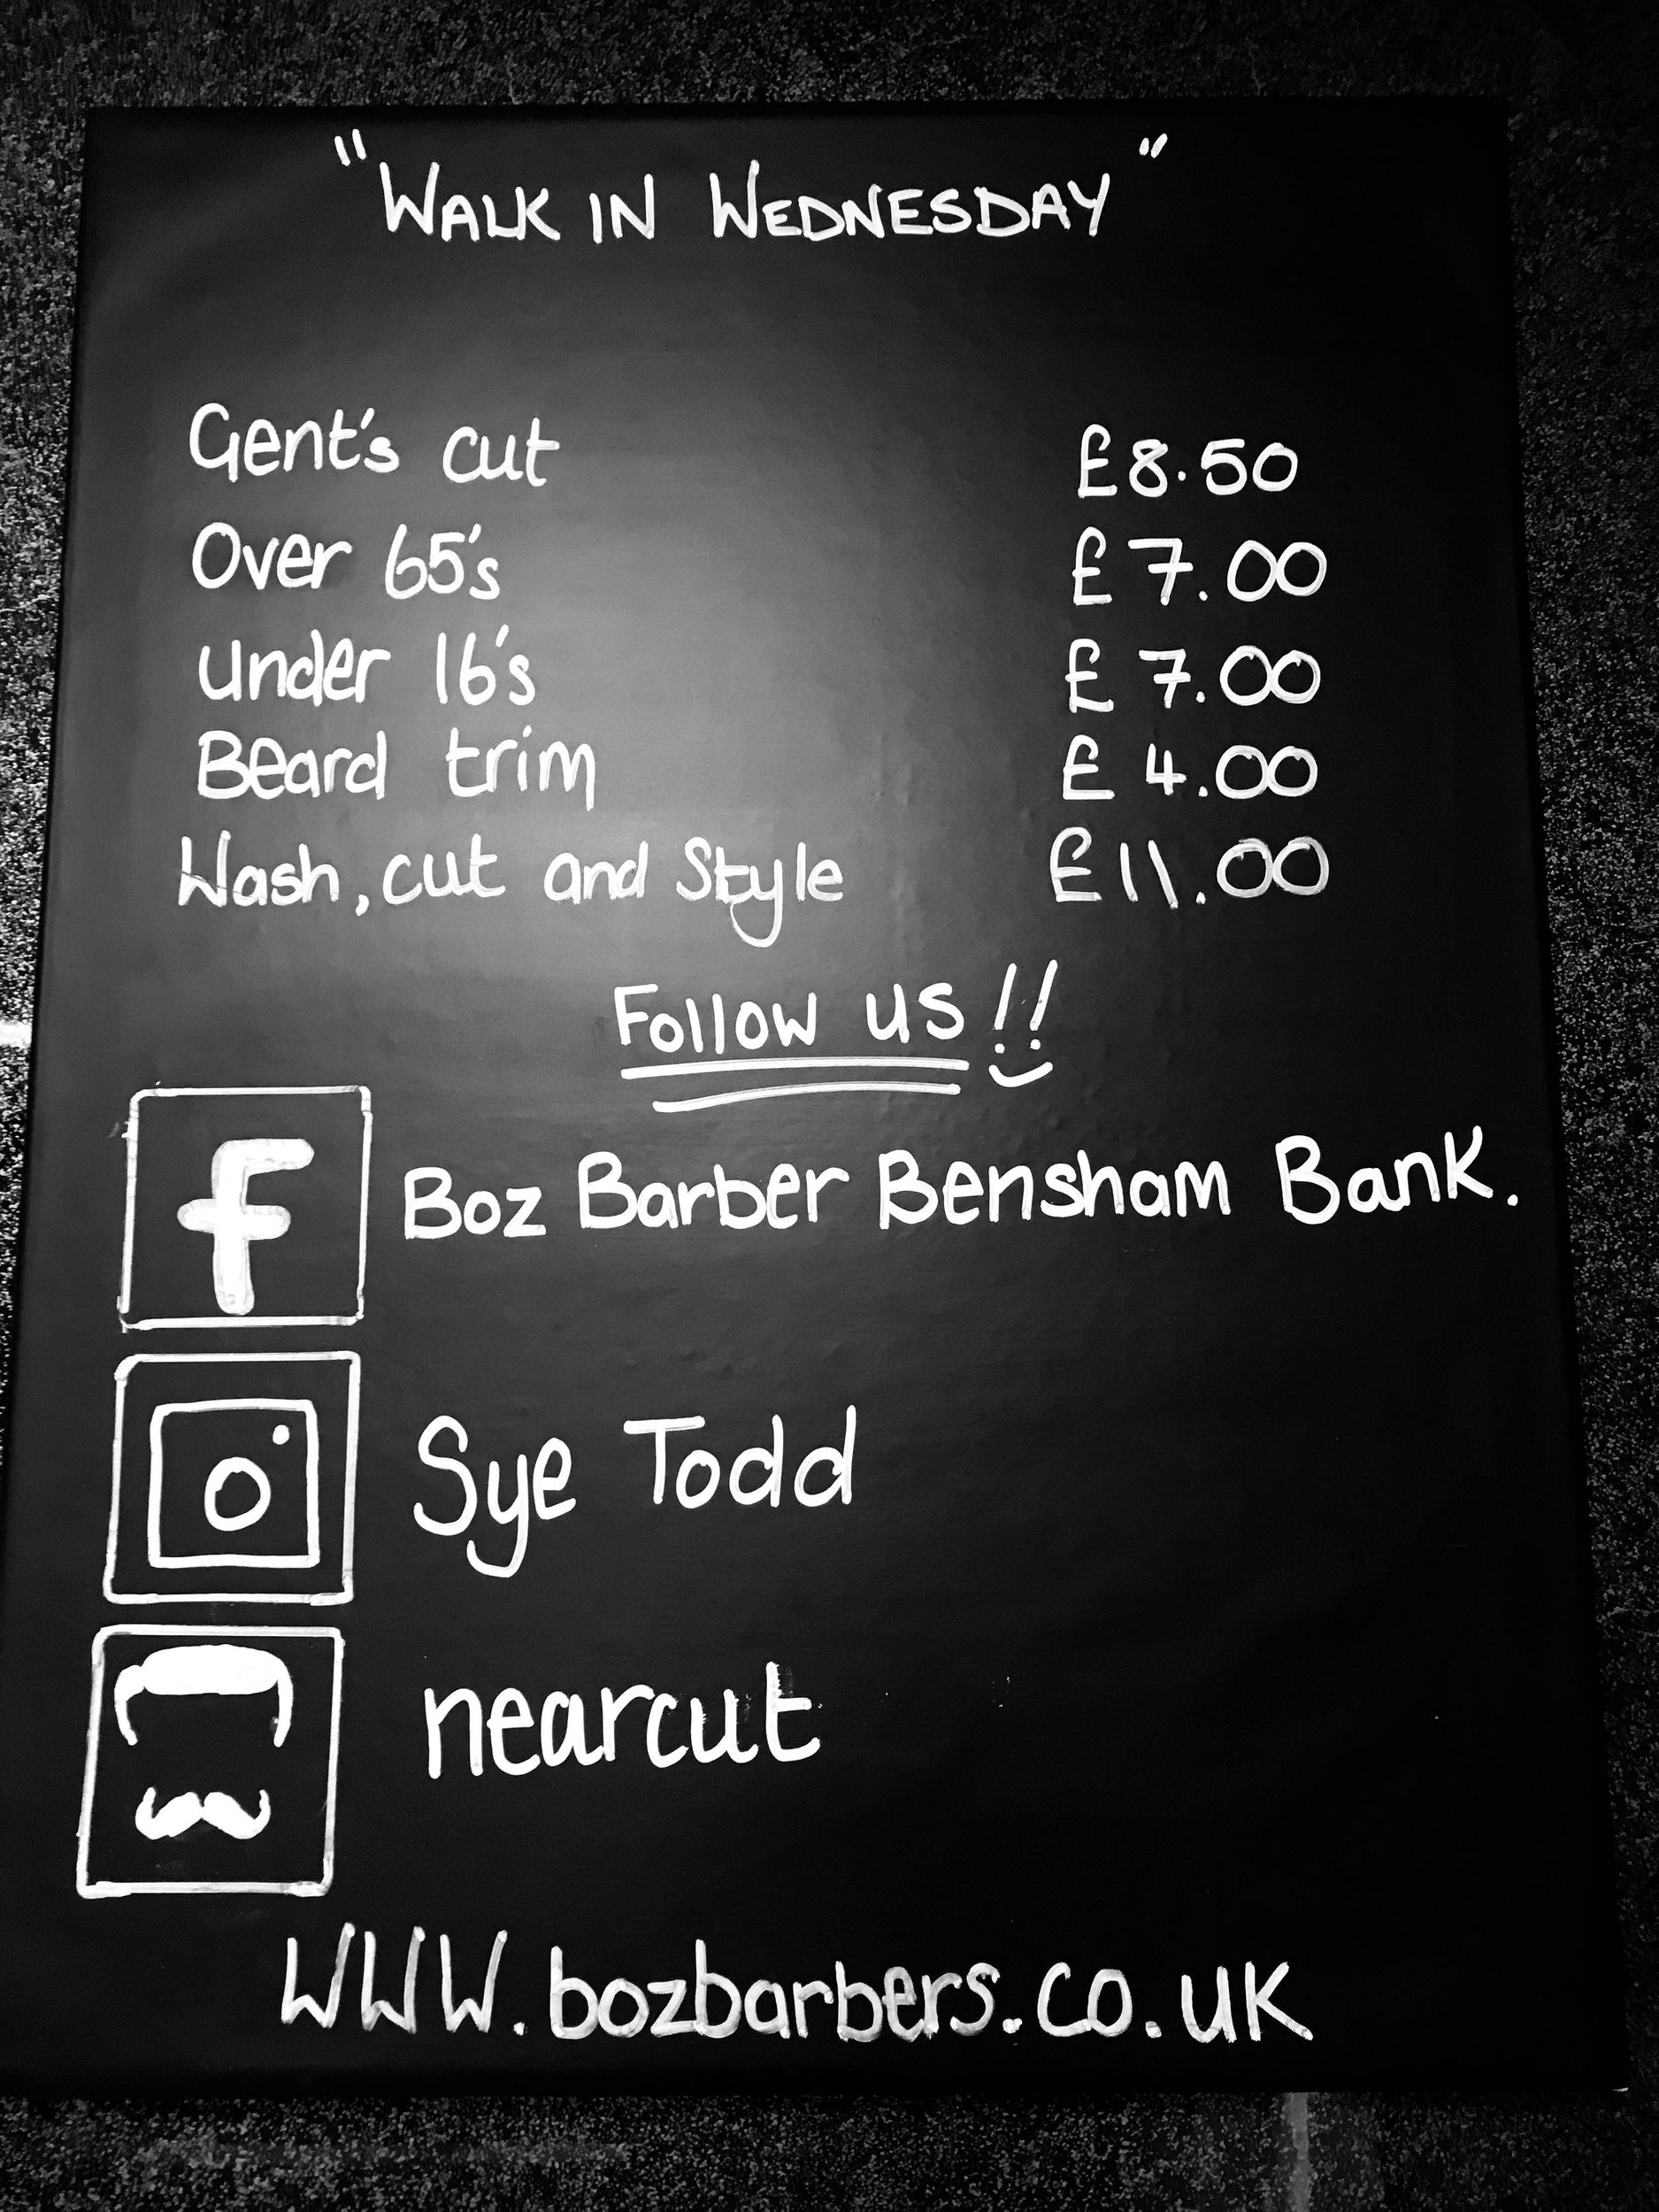 "WALK IN WEDNESDAY"
Gent's cut £8.50
Over 65's £7.00
under 16's £7.00
Beard trim £4.00
Wash, cut and Style £11.00
Follow us!!
f Boz Barber Bensham Bank.
Sye Todd
nearcut
WWW.bozbarbers.co.uk